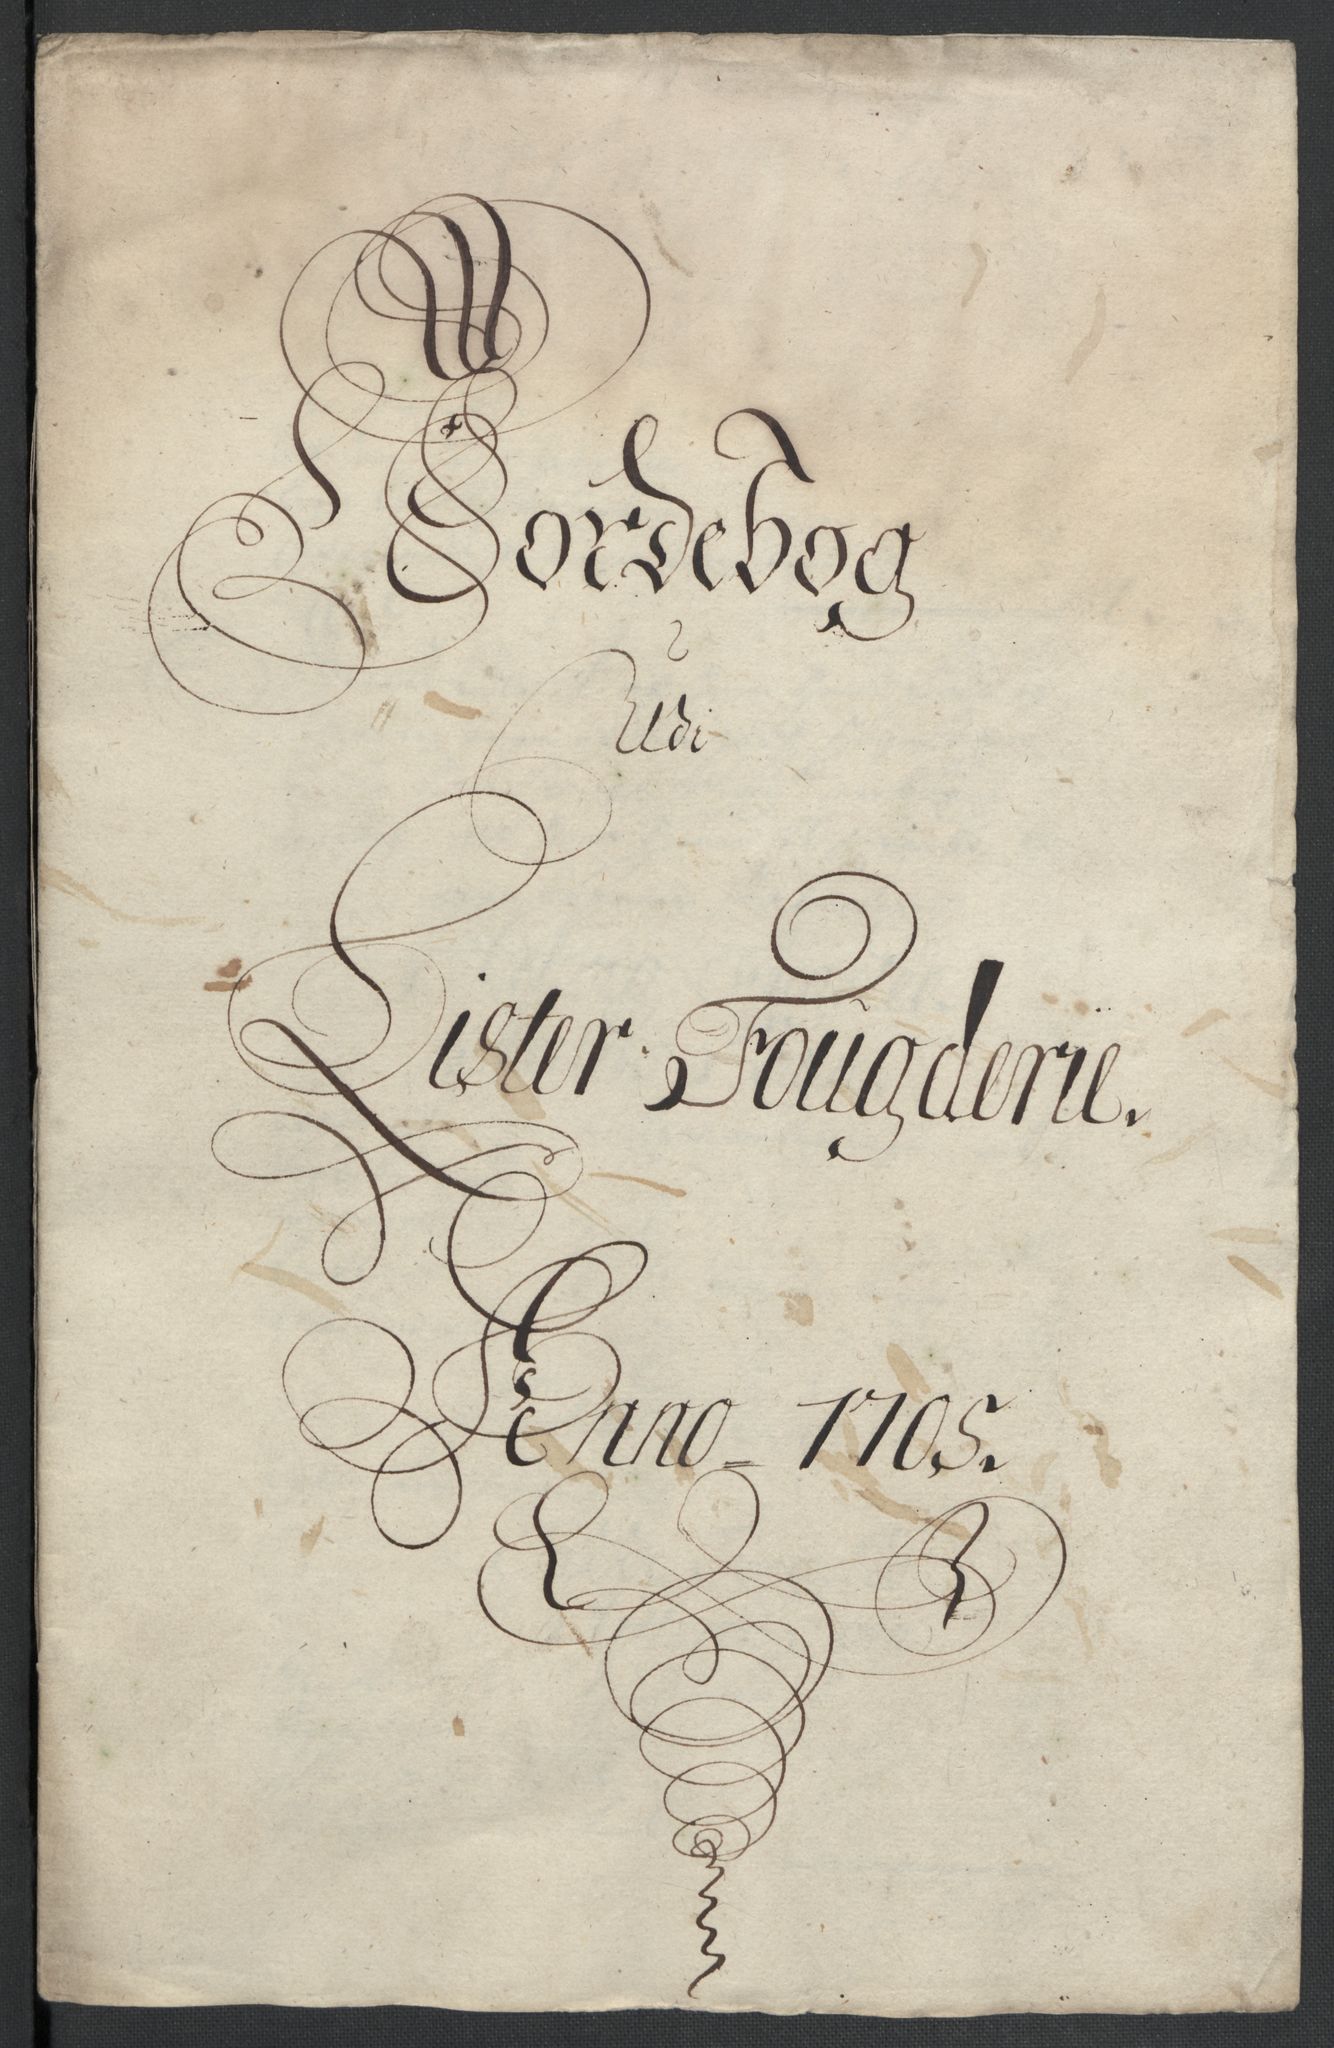 Jordebog
Udi
Lister Fougderie.
Anno 1705.